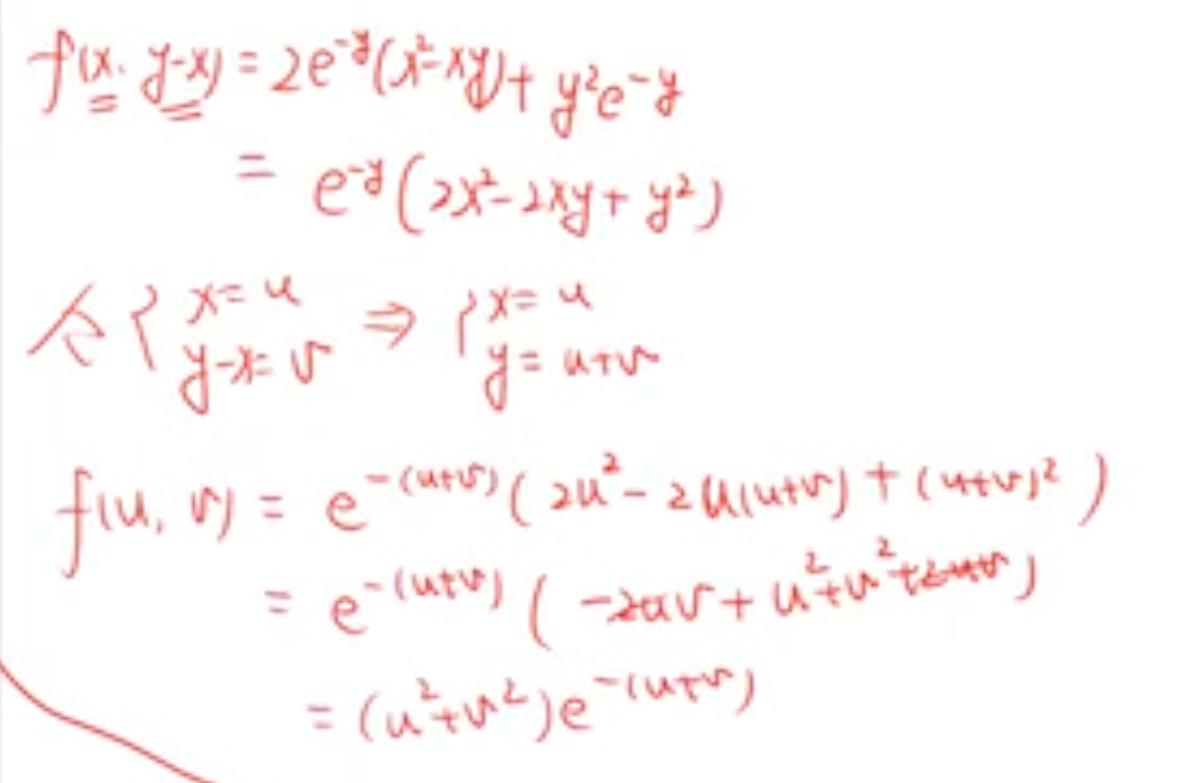 f(x, y-x) = 2e^{-y}(x²-xy) + y²e^{-y}
= e^{-y}(2x²-2xy+y²)
令 { x=u y-x=v ⇒ { x=u y=u+v
f(u, v) = e^{-(u+v)}(2u²-2u(u+v)+(u+v)²)
= e^{-(u+v)}(-2uv+u²+v²+2uv)
= (u²+v²)e^{-(u+v)}